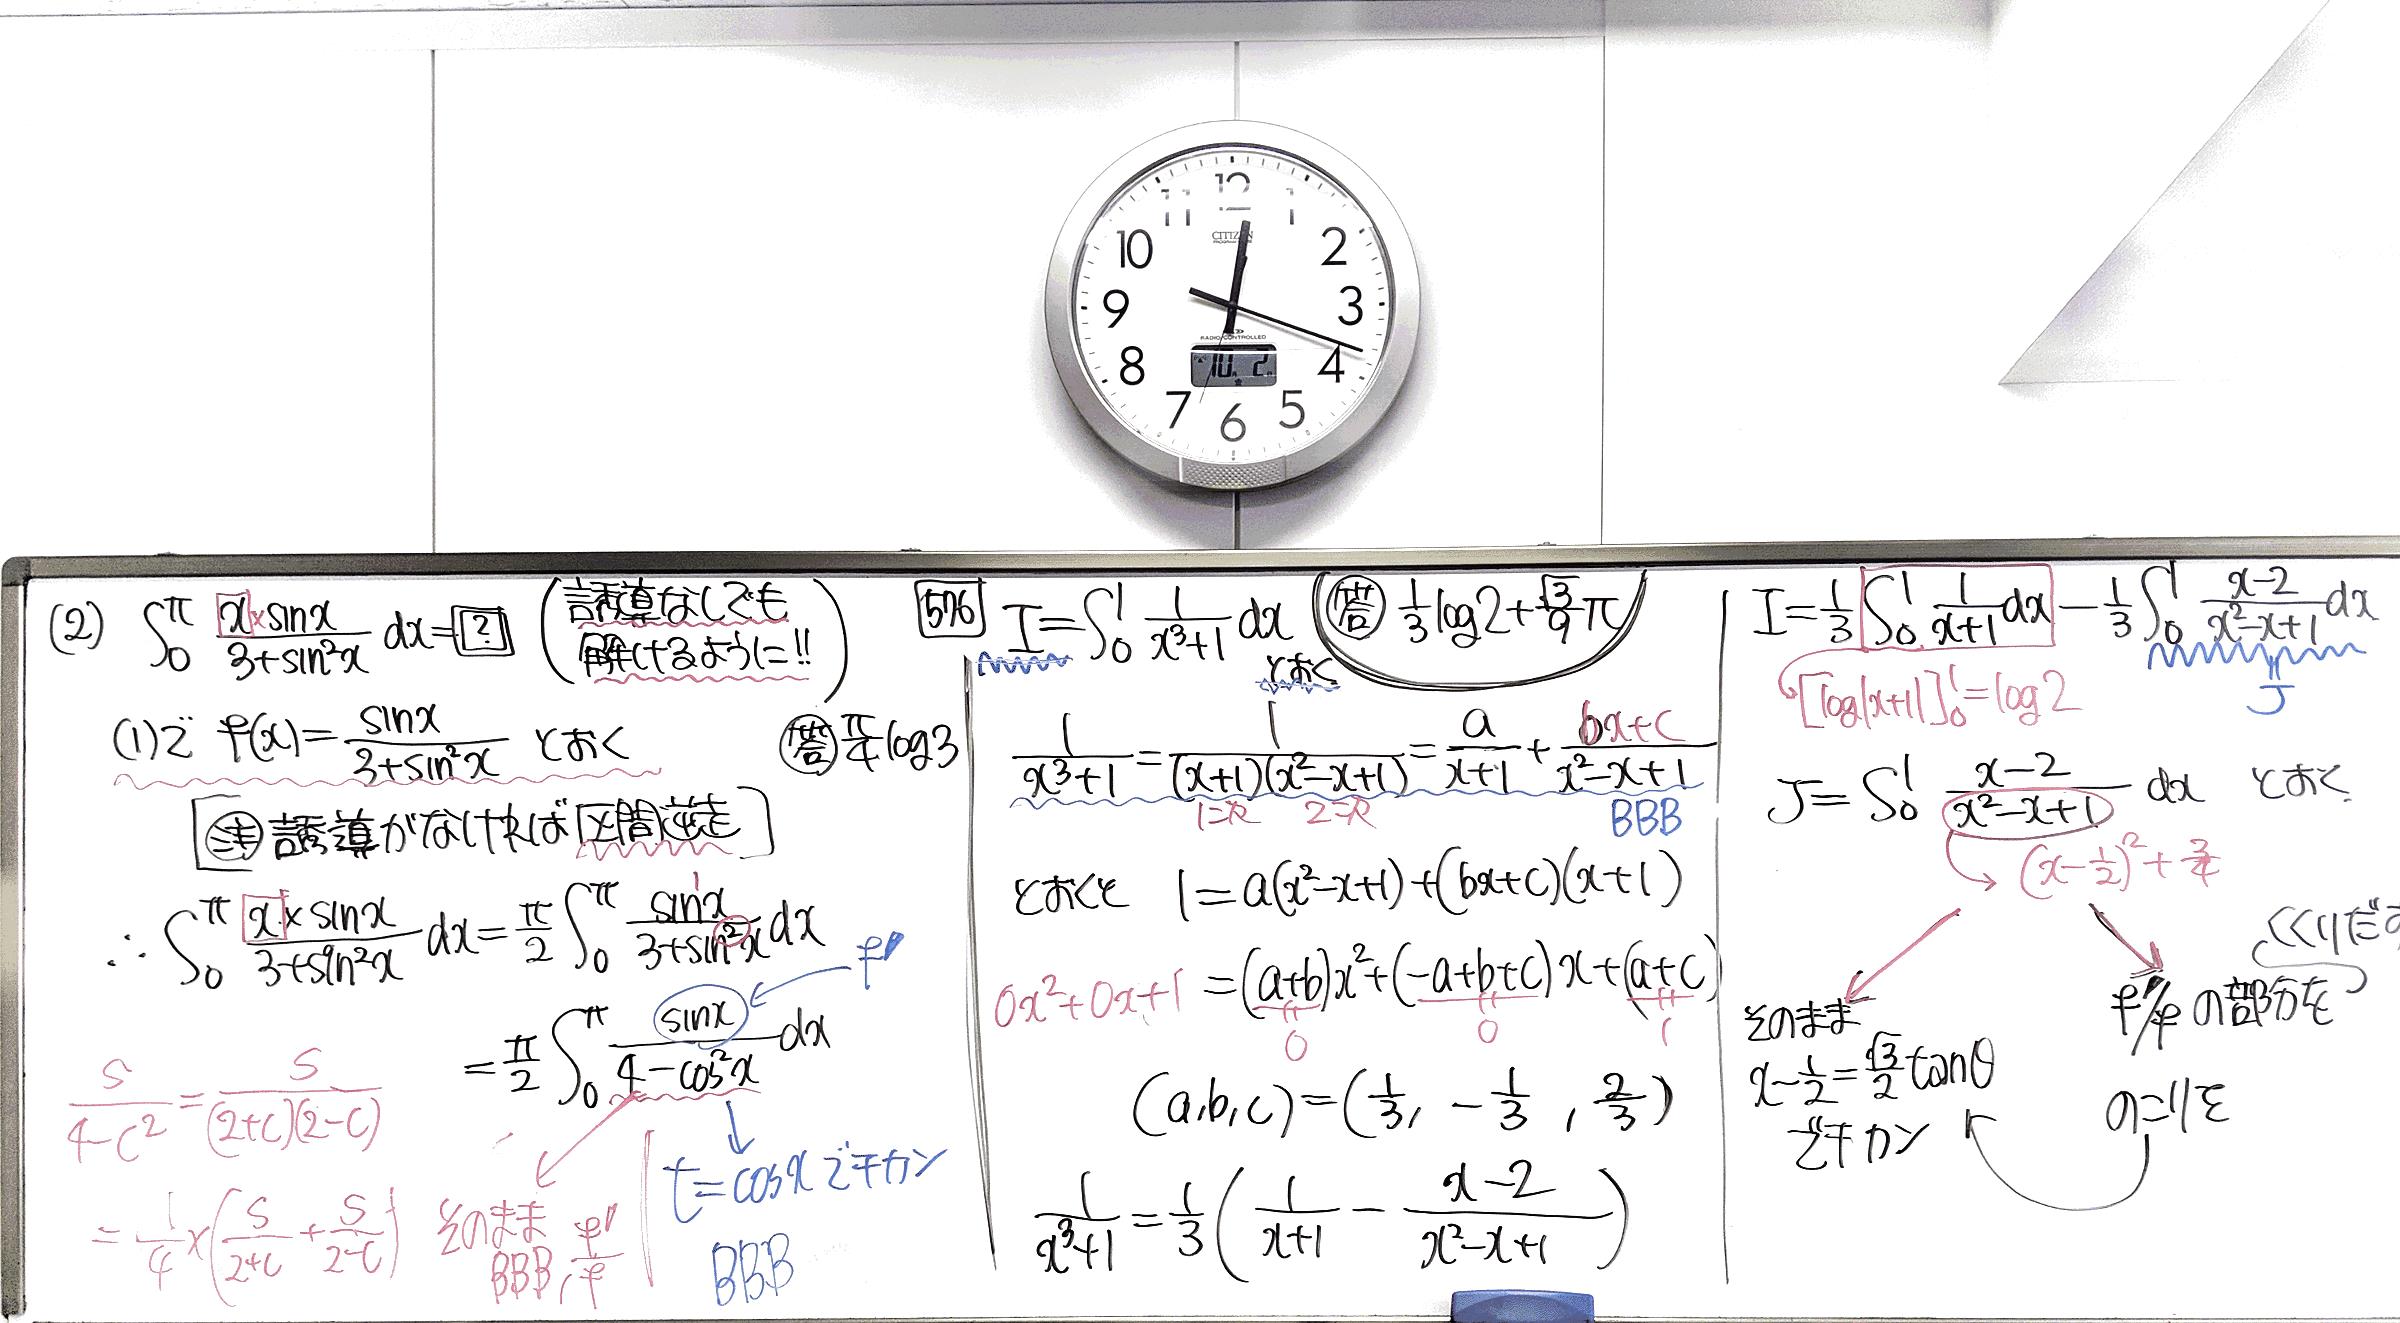 12
1
2
3
4
5
6
7
8
9
10
11
CITIZEN
RADIO CONTROLLED
10 2
(2) ∫₀^π x×sinx/(3+sin²x) dx = [?] (誘導なしでも
解けるように!!)
(1)で f(x) = sinx/(3+sin²x) とおく
答 π/4 log3
[注 誘導がなければ区間逆走]
∴ ∫₀^π x×sinx/(3+sin²x) dx = π/2 ∫₀^π sin¹x/(3+sin²x) dx
f'
= π/2 ∫₀^π sinx/(4-cos²x) dx
S/(4-C²) = S/((2+C)(2-C))
= 1/4 × (S/(2+C) + S/(2-C))
そのまま
BBB, f'/f
t=cosxでチカン
BBB
576 I = ∫₀¹ 1/(x³+1) dx とおく
答 1/3 log2 + √3/9 π
1/(x³+1) = 1/((x+1)(x²-x+1)) = a/(x+1) + (bx+c)/(x²-x+1)
1次 2次 BBB
とおくと 1 = a(x²-x+1)+(bx+c)(x+1)
0x²+0x+1 = (a+b)x²+(-a+b+c)x+(a+c)
0 0 1
(a,b,c)=(1/3, -1/3, 2/3)
1/(x³+1) = 1/3 (1/(x+1) - (x-2)/(x²-x+1))
I = 1/3 ∫₀¹ 1/(x+1) dx - 1/3 ∫₀¹ (x-2)/(x²-x+1) dx
[log|x+1|]₀¹ = log2
J
J = ∫₀¹ (x-2)/(x²-x+1) dx とおく
(x-1/2)²+3/4
そのまま
x-1/2 = √3/2 tanθ
でチカン
くくりだす
f'/f の部分を
のこりを